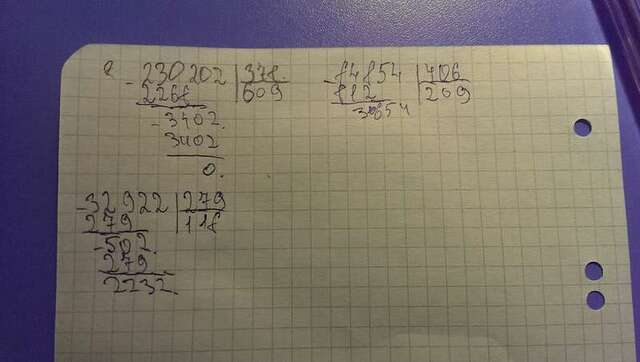 - 230202 | 378
2268 609
- 3402
3402
0.
- 84854 | 406
812 209
3654
- 32922 | 279
279 118
- 502
279
2232